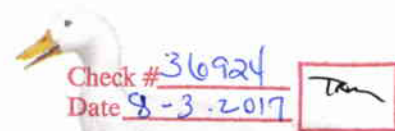 Check # 36924
Date 8-3.2017